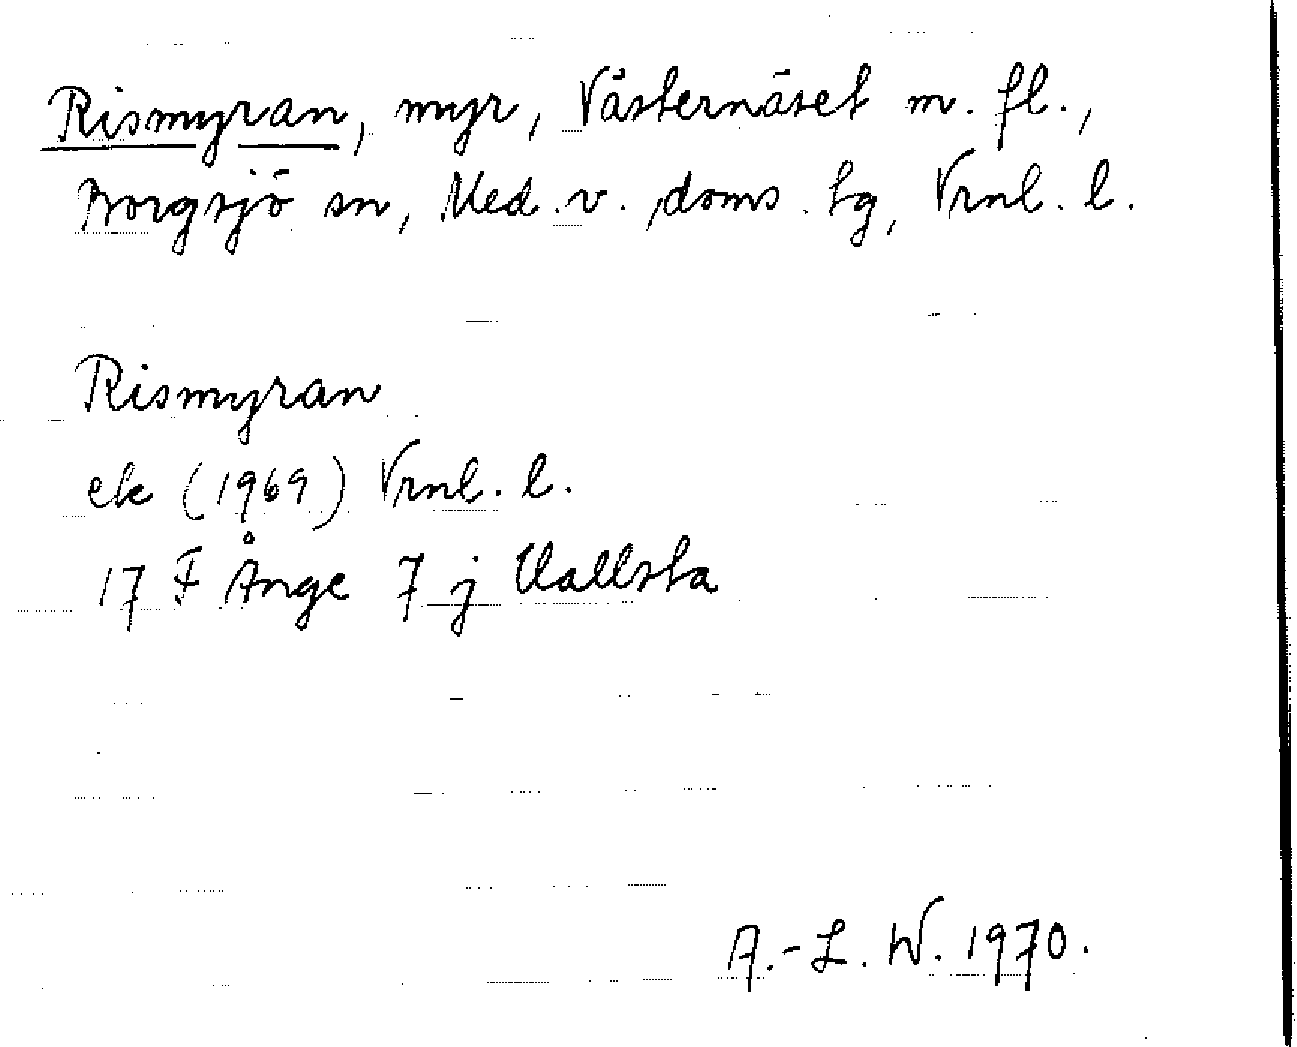 Rismyran, myr, Västernäset m. fl.,
Borgsjö sn, Med. v. doms. tg, Vrnl. l.
Rismyran
ek (1969) Vrnl. l.
17 F Ånge 7 j Vallsta
A.-L. W. 1970.